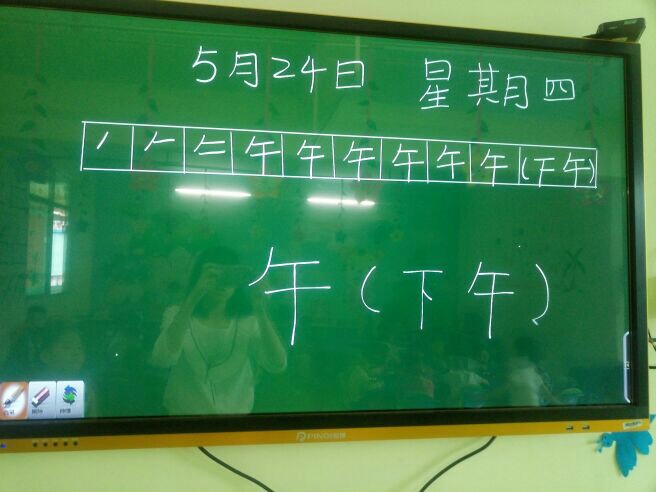 5月24日 星期四
丿 𠂉 午 午 午 午 午 午 (下午)
午(下午)
PINDI